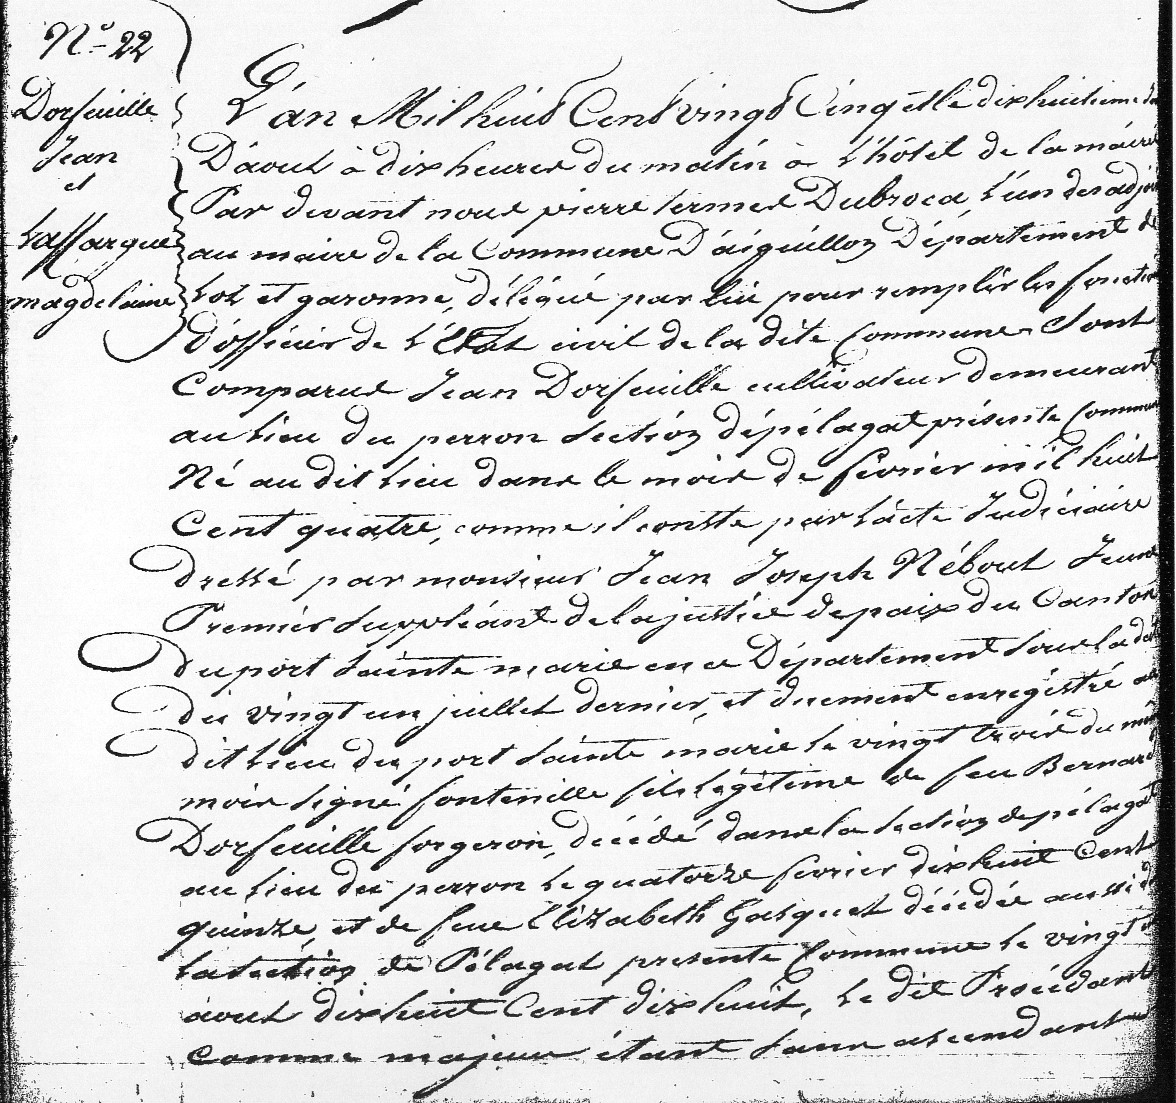 N.° 22
Dorfeuille
Jean
et
Laffargue
magdelaine
L'an Mil huit Cent vingt Cinq et le dixhuitieme
D'aout à dix heures du matin à L'hôtel de la mairie
Par devant nous pierre termes Dubroca, L'un des adj
au maire de la Commune D'aiguillon Département de
Lot et garonne, délégué par lui pour remplir les fonction
d'officier de L'Etat civil de la dite Commune Sont
Comparus Jean Dorfeuille cultivateur demeurant
au Lieu du perron Section dépélagat présente Commun
Né au dit Lieu dans le mois de fevrier mil huit
Cent quatre, comme il conste par L'acte Judiciaire
dressé par monsieur Jean Joseph Nébout Jeune
Premier Suppléant de la justice de paix du Canton
du port Sainte marie en ce Département Sous la dat
du vingt un juillet dernier, et duement enregistré au
dit Lieu du port Sainte marie le vingt trois du mêm
mois Signé fontenille fils légitime de feu Bernard
Dorfeuille forgeron, décédé dans la Section de pélagat
au Lieu du perron Le quatorze fevrier dixhuit Cent
quinze, et de feue Elizabeth Gasquet décédée aussi d
La Section de Pélagat presente Commune le vingt
aout dixhuit Cent dixhuit, Le dit Procédant
comme majeur étant Sans ascendants